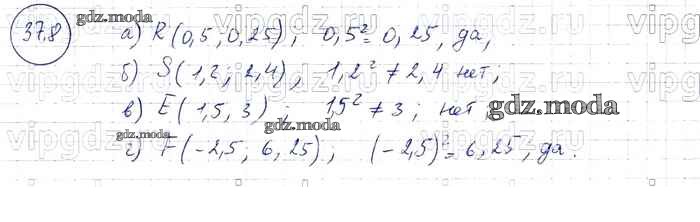 37.8
gdz.moda
а) R(0,5; 0,25); 0,5² = 0,25, да;
vipgdz.ru vipgdz.ru vipgdz.ru vipgdz.ru
б) S(1,2; 2,4), 1,2² ≠ 2,4 нет;
в) E(1,5, 3); 1,5² ≠ 3; нет;
gdz.moda
gdz.moda
vipgdz.ru vipgdz.ru vipgdz.ru vipgdz.ru
г) F(-2,5; 6,25); (-2,5)² = 6,25, да.